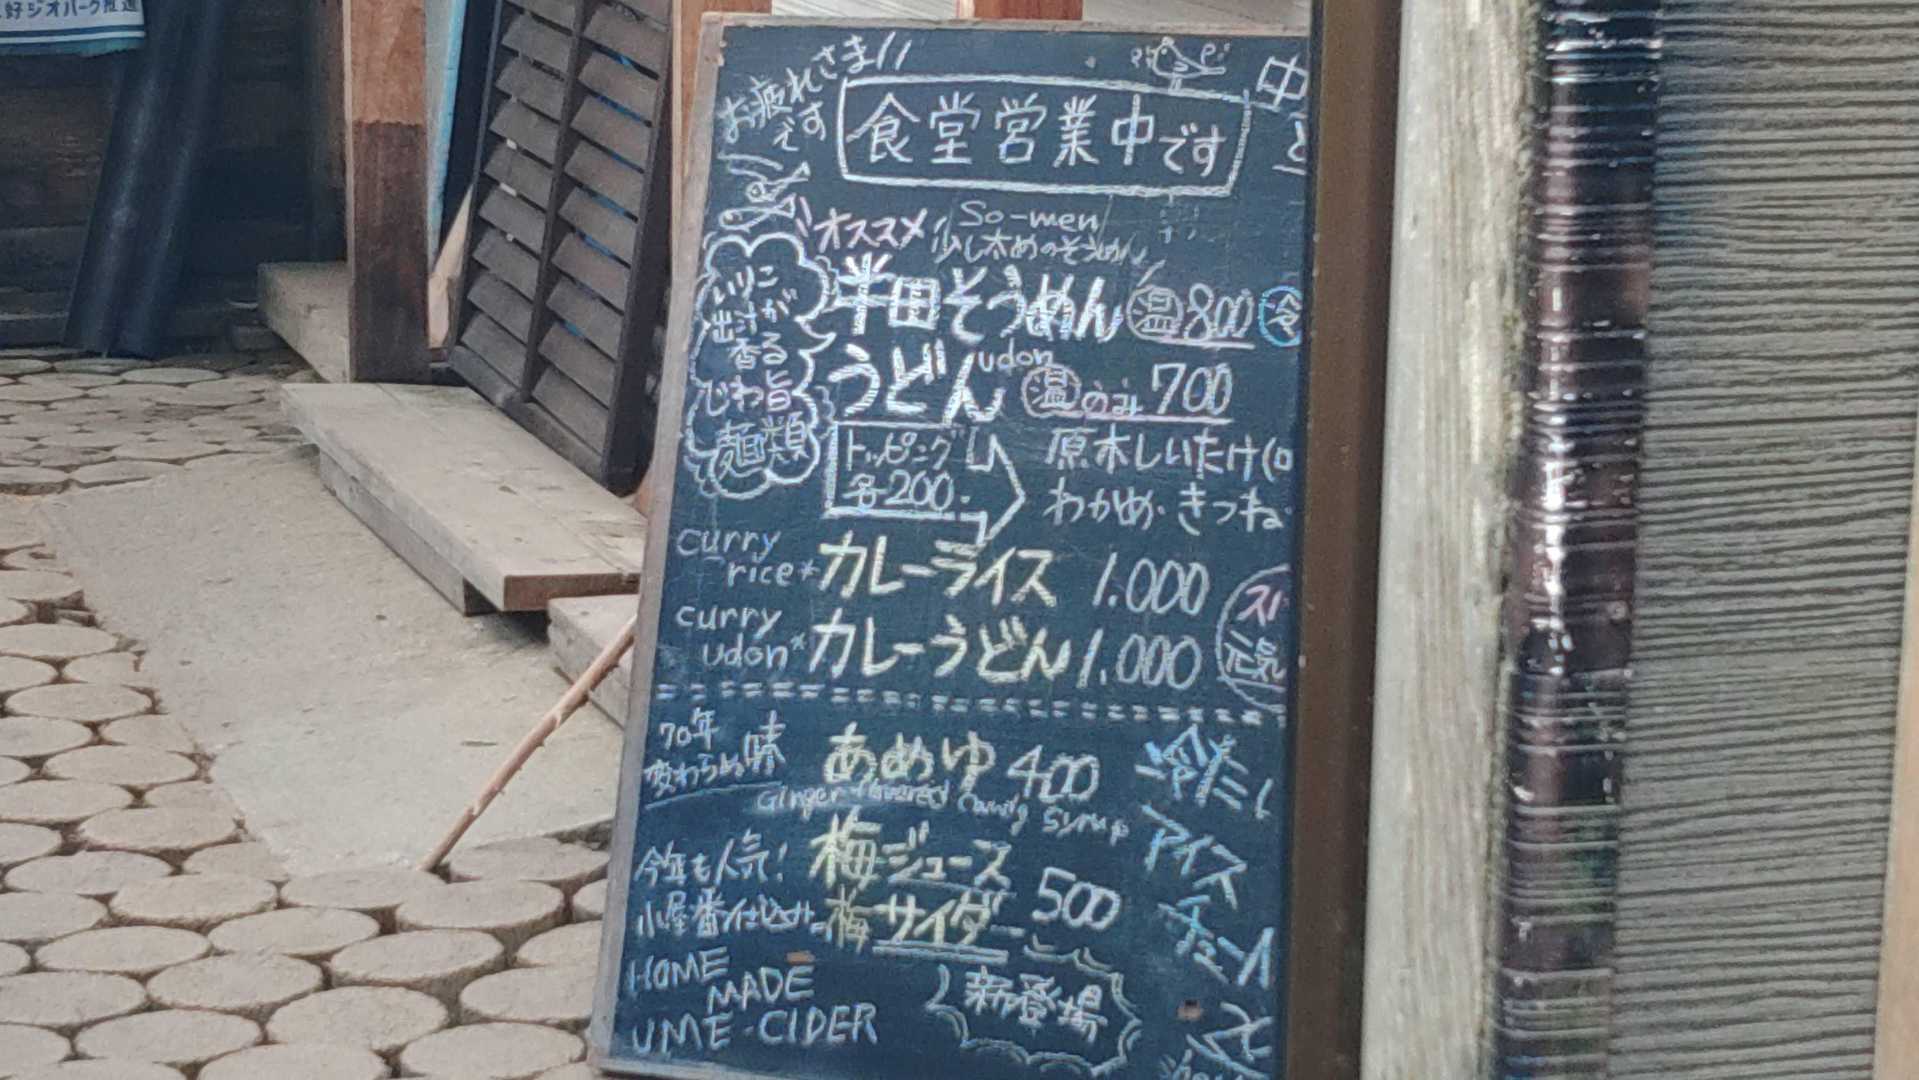 好ジオパーク推進
お疲れさま!!
食堂営業中です
中
と
オススメ
So-men
少し太めのそうめん
いりこ
出汁が
香る
じわ旨
麺類
半田そうめん 温 800 冷
うどん udon 温のみ 700
トッピング
各200.
原木しいたけ
わかめ・きつね
curry
rice*カレーライス 1.000
curry
udon*カレーうどん 1.000
元気
70年
変わらぬ味
あめゆ 400
Ginger flavored Candy Syrup
冷たし
アイス
今年も人気!
小屋番仕込み
梅ジュース
梅サイダー
500
HOME
MADE
UME-CIDER
新登場